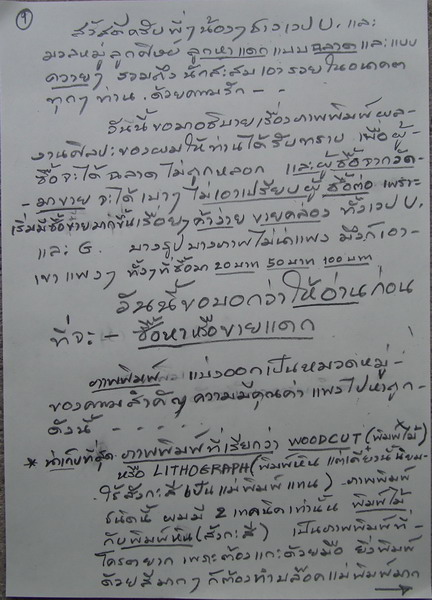 1
สวัสดีครับพี่ๆน้องๆชาวเวป U. และ
มวลหมู่ลูกศิษย์ ลูกหาแดกแบบฉลาดและแบบ
ควายๆ รวมถึงนักสะสมเอารวยในอนาคต
ทุกๆท่าน ด้วยความรัก - -
วันนี้ขอมาอธิบายเรื่องภาพพิมพ์ผล-
งานศิลปะของผมให้ท่านได้รับทราบ เพื่อผู้-
ซื้อจะได้ฉลาดไม่ถูกหลอก และผู้ซื้อจาก
มาขาย จะได้เบาๆ ไม่เอาเปรียบผู้ซื้อต่อ เพราะ
เริ่มมีซื้อขายมากขึ้นเรื่อยๆ ค้าง่าย ขายคล่อง ทั้งเวป U.
และ G. บางรูปบางภาพไม่น่าแพง มึงก็เอา-
เขาแพงๆ ทั้งๆที่ซื้อมา 20 บาท 50 บาท 100 บาท
วันนี้ขอบอกว่า ให้อ่านก่อน
ที่จะ - ซื้อหาหรือขายแดก
ภาพพิมพ์ แบ่งออกเป็นหมวดหมู่-
ของความสำคัญ ความมีคุณค่า แพงไปหาถูก-
ดังนี้ - - - -
* น่าเก็บที่สุด ภาพพิมพ์ที่เรียกว่า WOODCUT (พิมพ์ไม้)
หรือ LITHOGRAPH (พิมพ์หิน แต่เดี๋ยวนี้นิยม-
ใช้สังกะสีเป็นแม่พิมพ์แทน) ภาพพิมพ์
ชนิดนี้ ผมมี 2 เทคนิคเท่านั้น พิมพ์ไม้
กับพิมพ์หิน (สังกะสี) เป็นภาพพิมพ์ที่-
โคตรยาก เพราะต้องแกะด้วยมือ ยิ่งพิมพ์
ด้วยสีมากๆ ก็ต้องทำบล๊อคแม่พิมพ์มาก